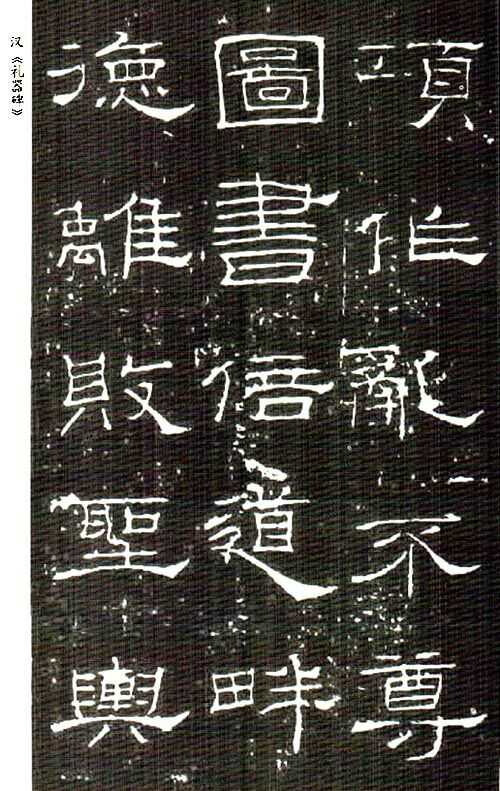 汉《礼器碑》
項作亂不尊
圖書倍道畔
德離敗聖輿